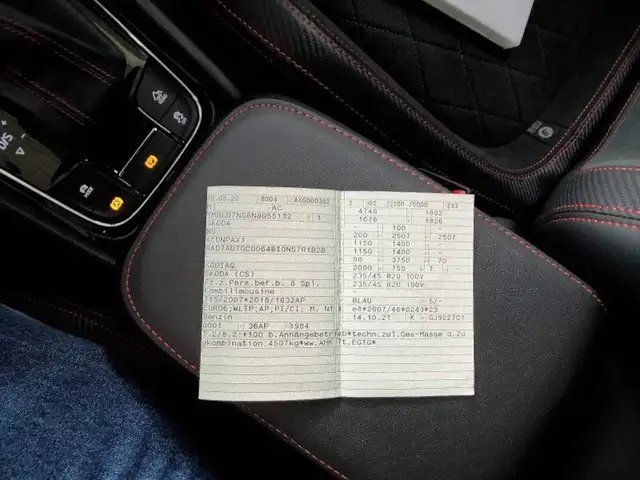 8004 AXG000382 2 02 180 /6000 233
AC 4748 1882
1 1676 1826
SKODA 100
NS 200 2507 2507
ACDNPAX1 1150 1400
1150 1400
KODIAQ 3750 70
SKODA (CS) 2000 750
Fz.z.Pers.bef.b. 8 Spl. 235/45 R20 100V
Kombilimousine 235/45 R20 100V
715/2007*2018/1832AP BLAU 5/-
EURO6;WLTP;AP;PI/CI; M, N1 I e8*2007/46*0249*23
Benzin 14.10.21 K GJ922701
0001 36AP 1984
b.Anhängebetrieb*techn.zul.Ges-Masse d.Zu
gkombination:4507kg*ww.AHK lt.EGTG*